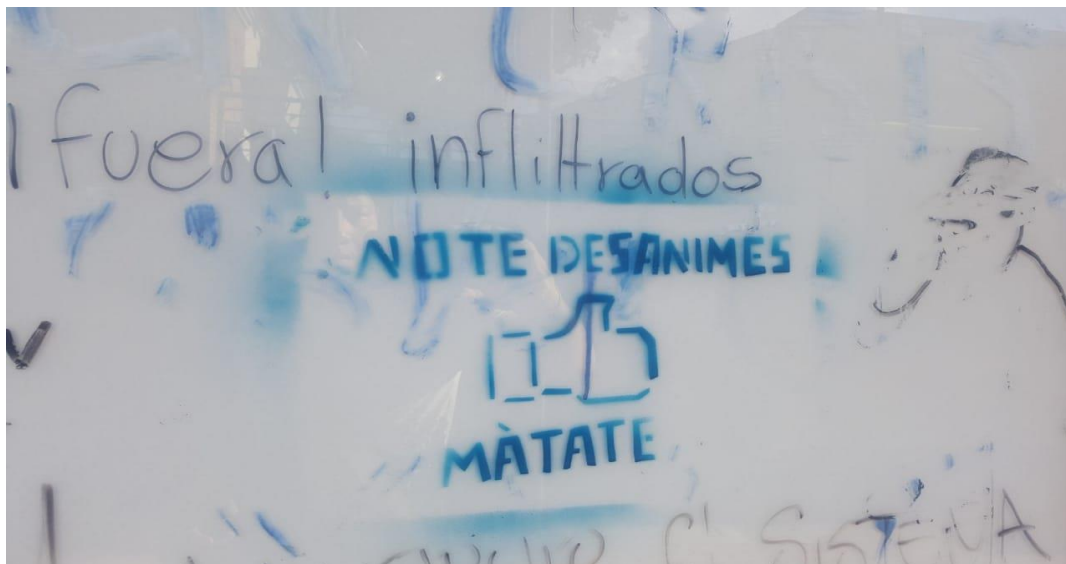 ¡fuera! infliltrados
NO TE DESANIMES
MÀTATE
el SISTEMA